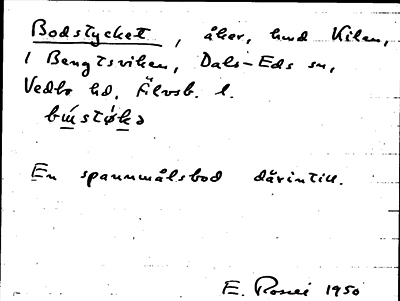 Bodstycket, åker, hmd Kilen,
i Bengtsviken, Dals-Eds sn,
Vedbo hd, Älvsb. l.
En spannmålsbod därintill.
E. Rosell 1950